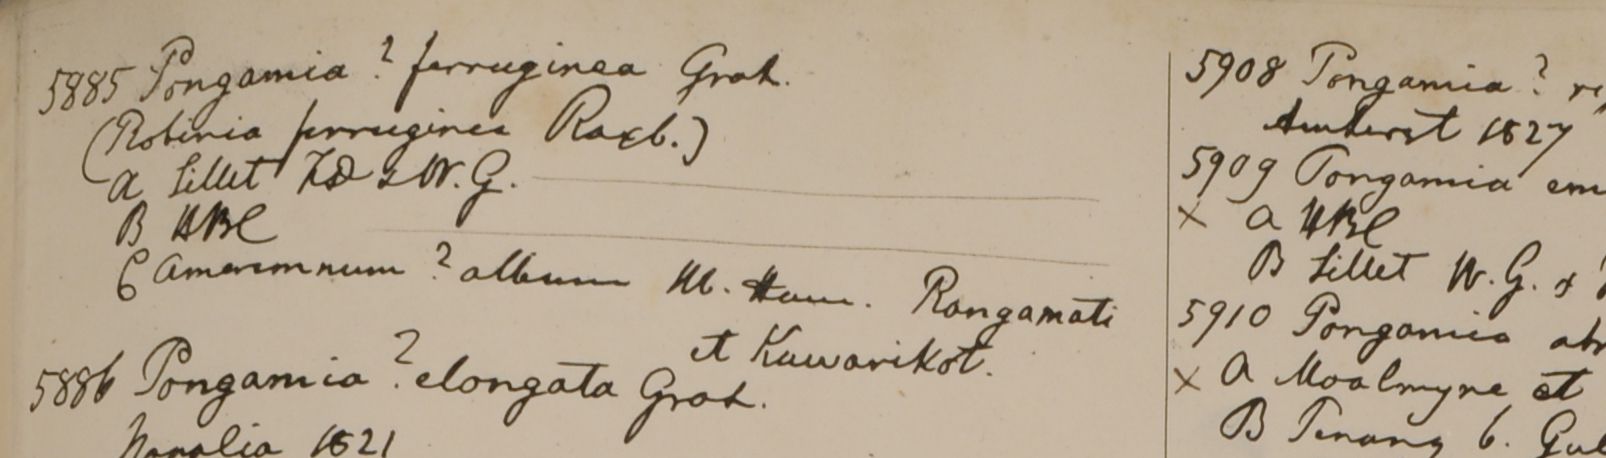 5885 Pongamia ? ferruginea Grah.
(Robinia ferruginea Roxb.)
a Sillet FD & W.G.
B HBC
C Amerimnum ? album Hb. Ham. Rangamati
et Kuwarikot.
5886 Pongamia ? elongata Grah.
Napalia 1821
5908 Pongamia ?
Amherst 1827
5909 Pongamia em
x a HBC
B Sillet W.G. &
5910 Pongamia atr
x a Moalmyne et
B Penang b. Gul